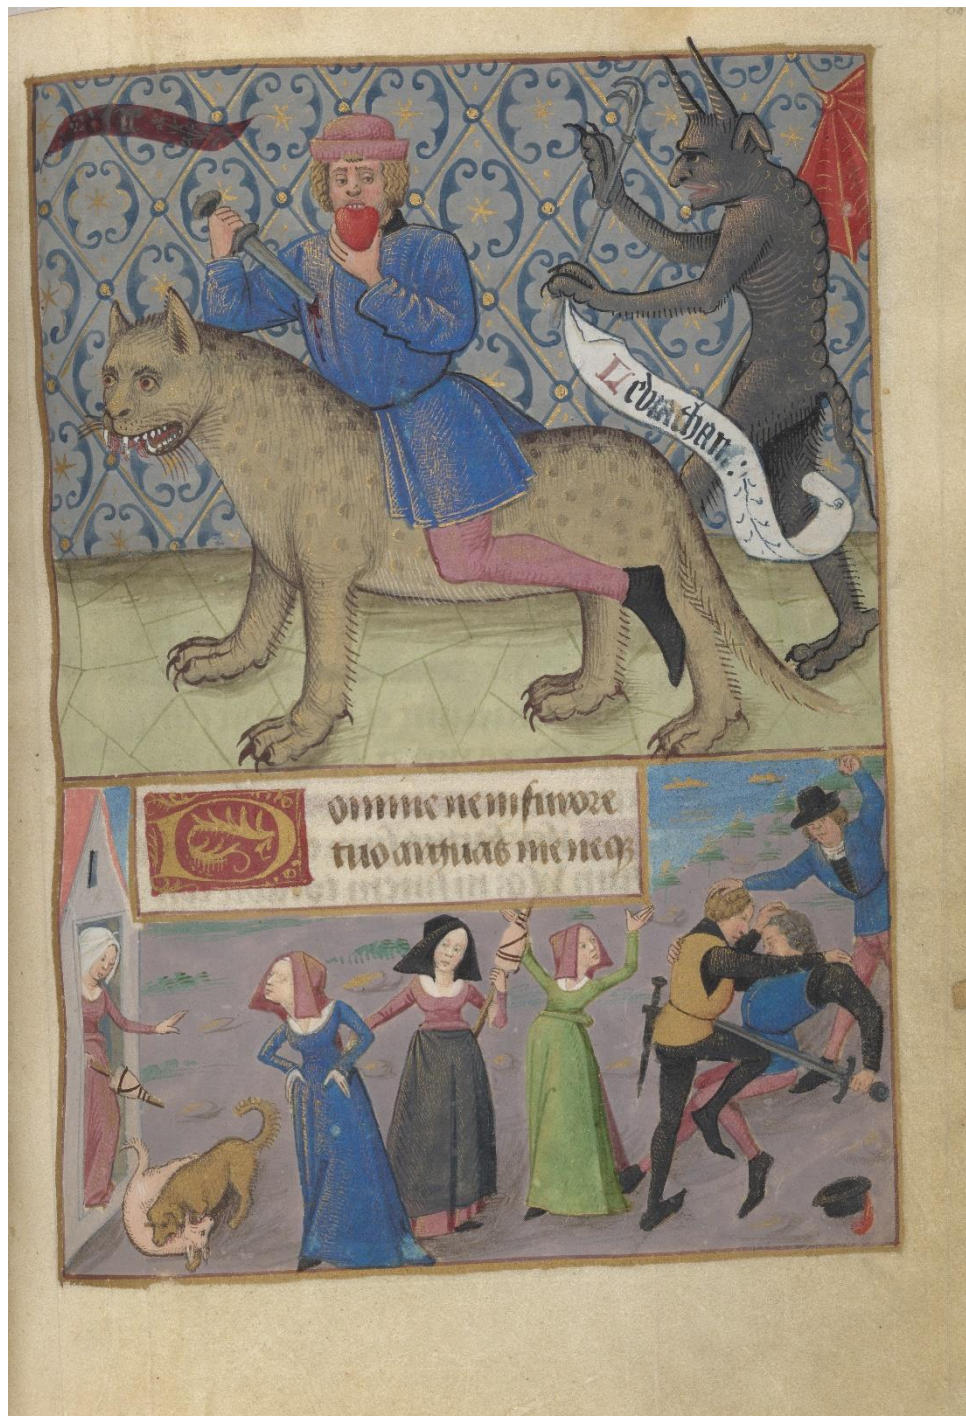 Leviathan
Domine ne in furore
tuo arguas me neqꝫ